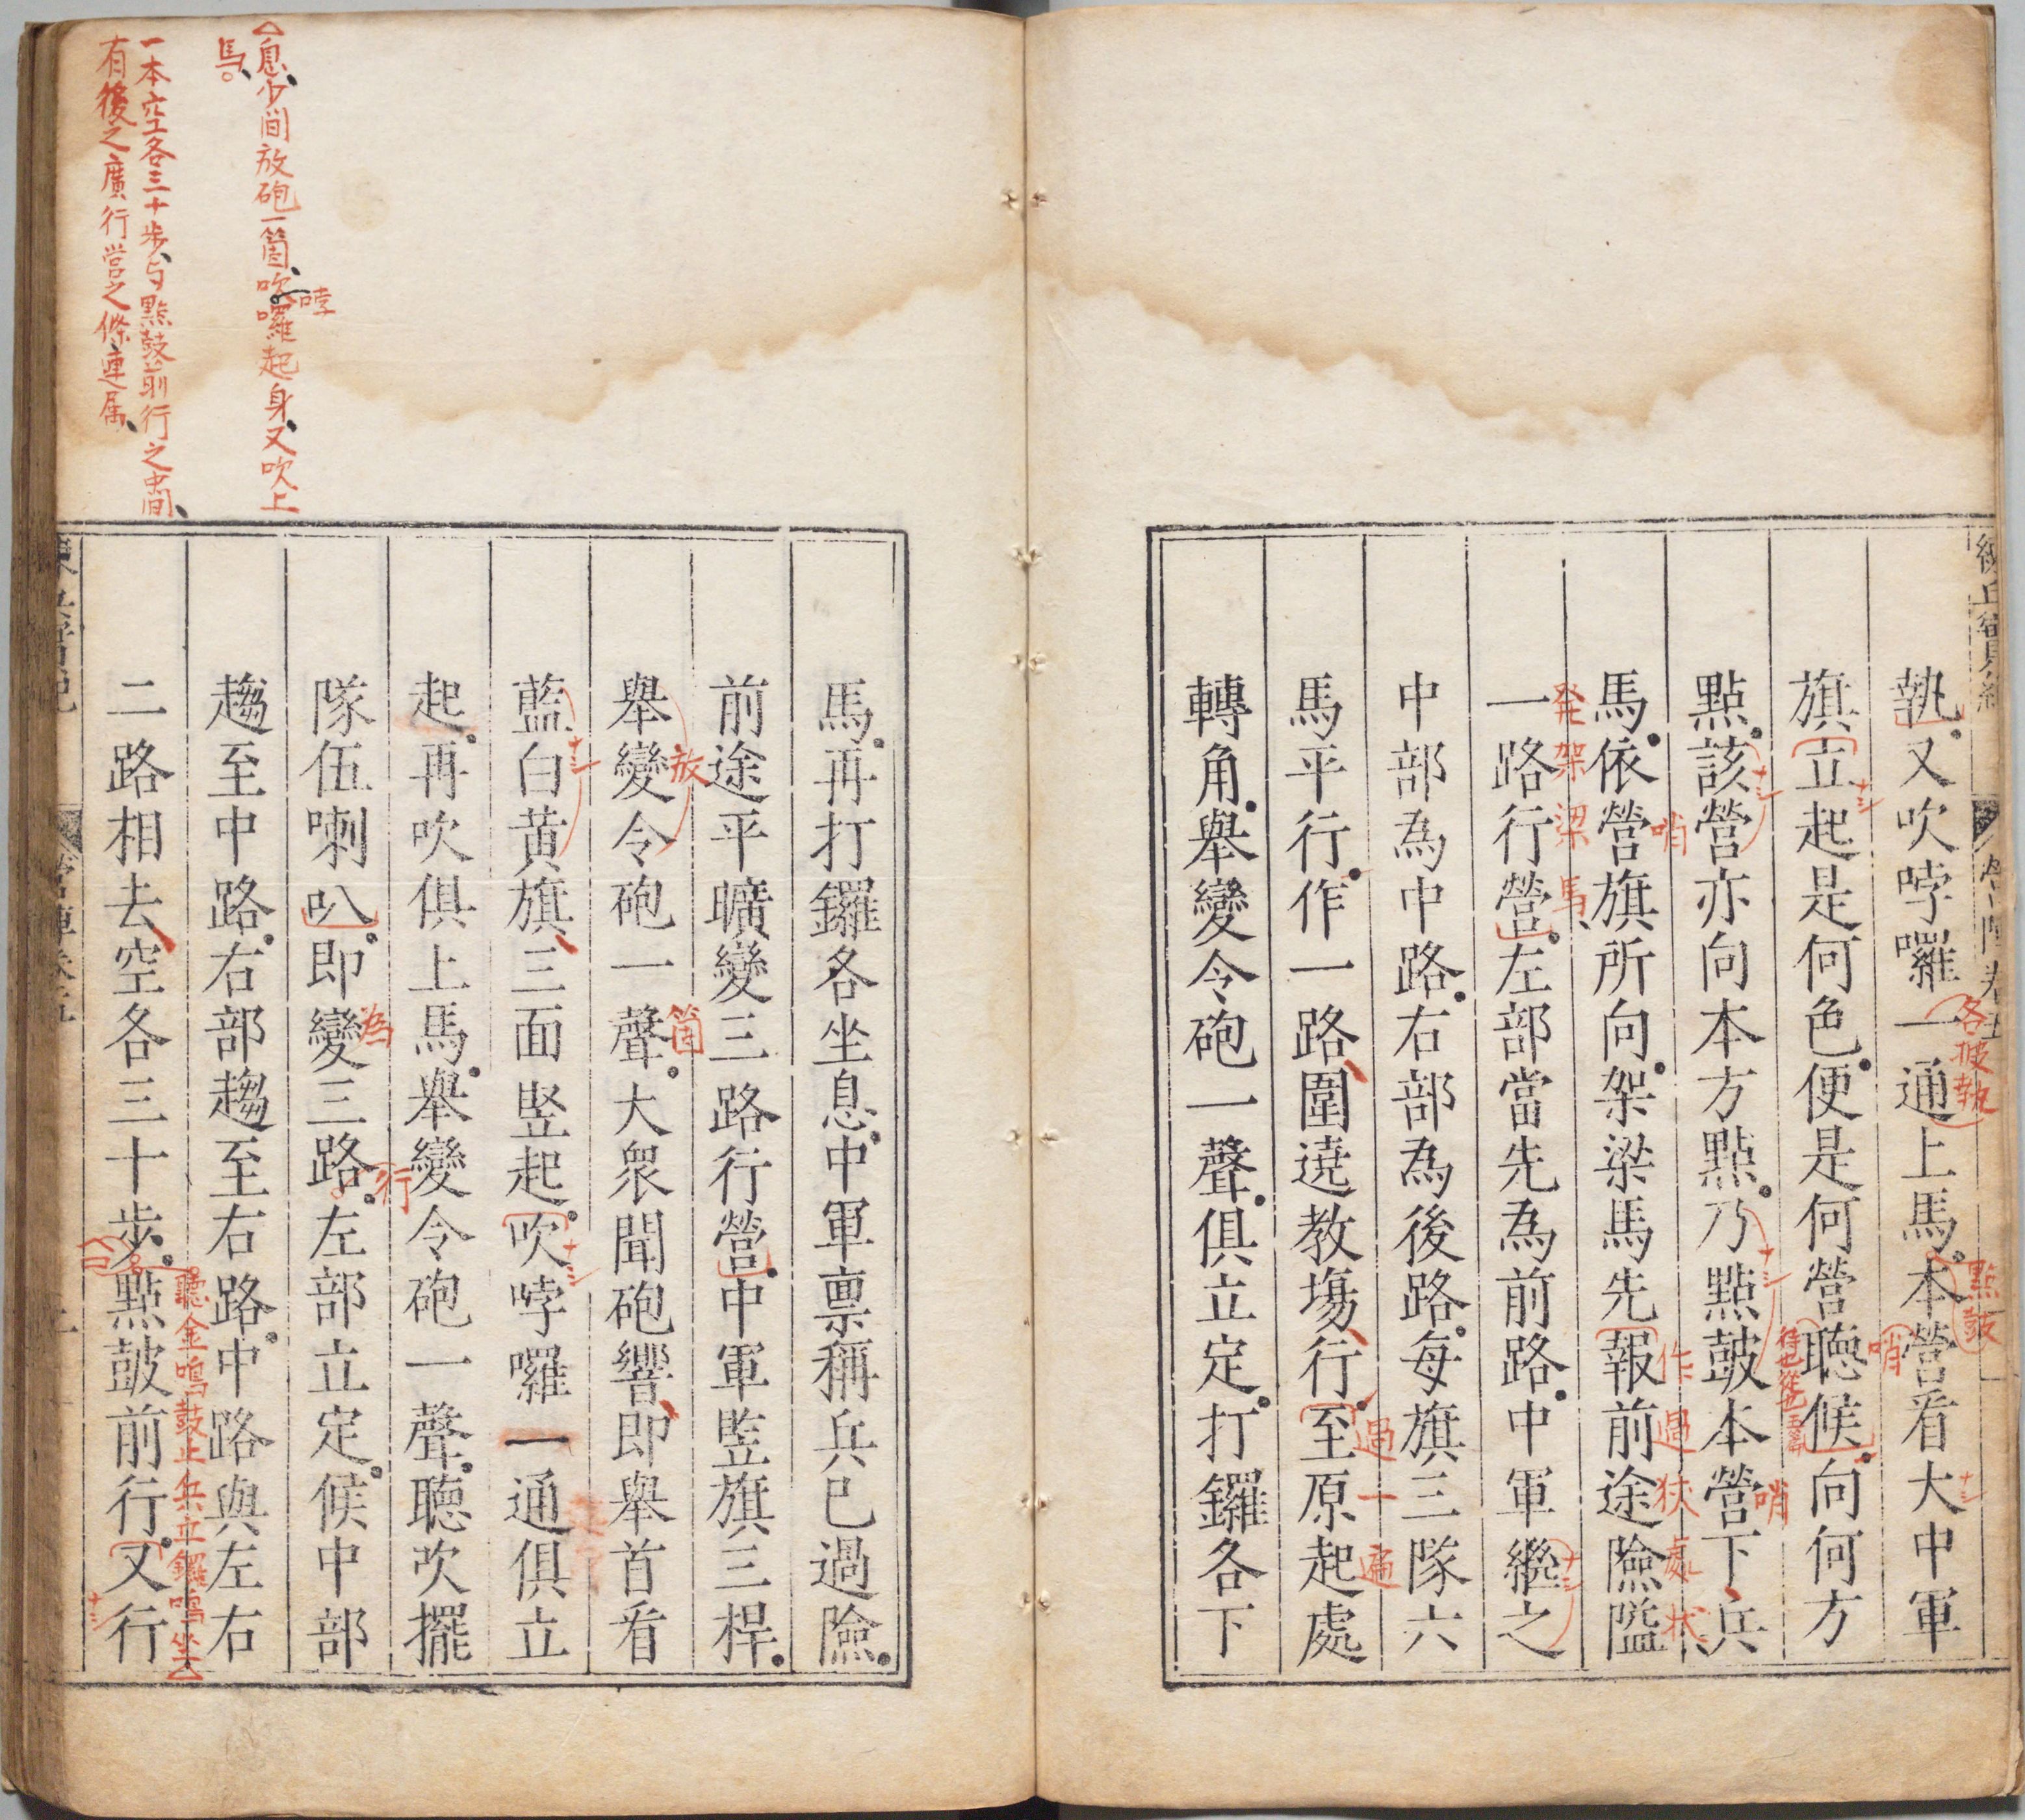 執又吹哱囉一通上馬本營看大中軍
各披執
點鼓
哨
ナシ
旗立起是何色便是何營聽候向何方
ナシ
點該營亦向本方點乃點鼓本營下兵
ナシ
ナシ
哨
馬依營旗所向架梁馬先報前途險隘
哨
作過狹處狀
一路行營左部當先為前路中軍繼之
発架梁馬
ナシ
中部為中路右部為後路每旗三隊六
馬平行作一路圍遶教場行至原起處
過一遍
轉角舉變令砲一聲俱立定打鑼各下
馬再打鑼各坐息中軍稟稱兵已過險
前途平曠變三路行營中軍竪旗三桿
舉變令砲一聲大衆聞砲響即舉首看
放
箇
藍白黃旗三面竪起吹哱囉一通俱立
ナシ
ナシ
起再吹俱上馬舉變令砲一聲聽吹擺
隊伍喇叭即變三路左部立定候中部
為
行
趨至中路右部趨至右路中路與左右
二路相去空各三十步點鼓前行又行
聽金鳴鼓止兵立鑼鳴坐△
ナシ
△息少間放砲一箇吹囉起身又吹上
哱
馬
一本空各三十步与點鼓前行之中間
有後之廣行營之條連属